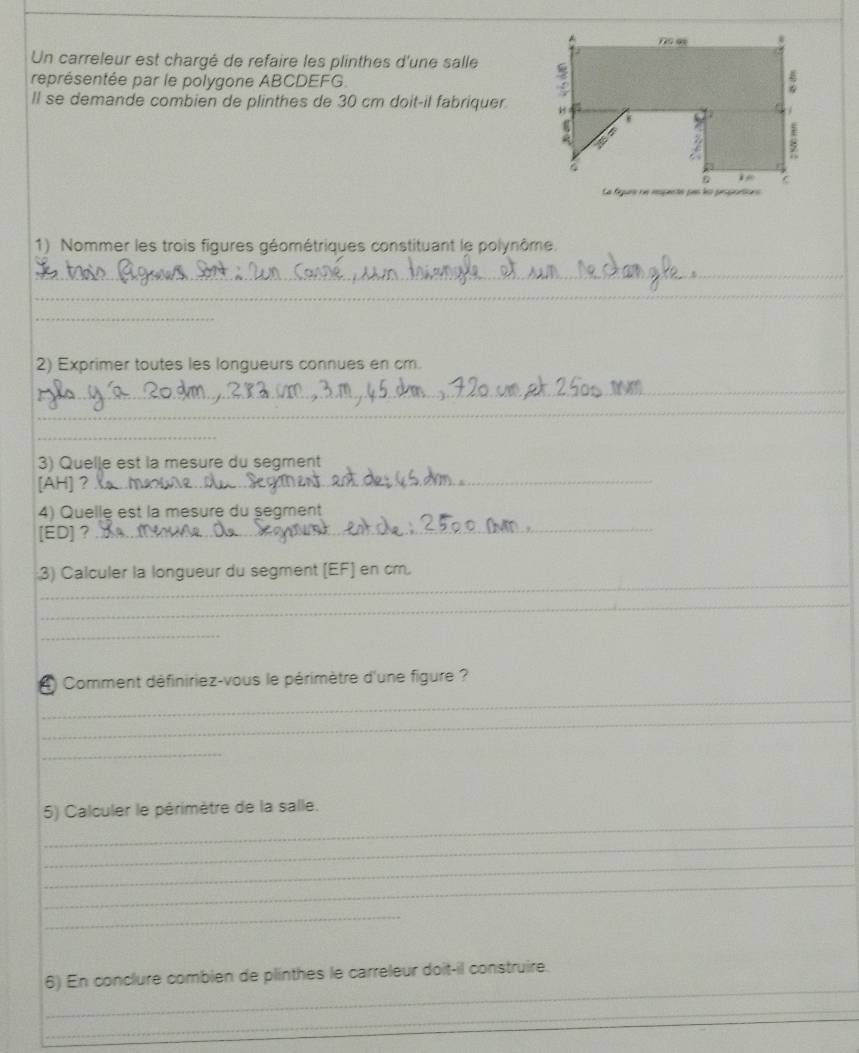 Un carreleur est chargé de refaire les plinthes d'une salle
représentée par le polygone ABCDEFG.
Il se demande combien de plinthes de 30 cm doit-il fabriquer.
A
720 cm
B
45 dm
H
I
E
20 dm
283 cm
2500 mm
G
D
3 m
C
La figure ne respecte pas les proportions.
1) Nommer les trois figures géométriques constituant le polynôme.
trois figures sont : un carré, un triangle et un rectangle.
2) Exprimer toutes les longueurs connues en cm.
y a 20 dm, 283 cm, 3 m, 45 dm, 720 cm et 2500 mm
3) Quelle est la mesure du segment
[AH] ? la mesure du segment est de : 45 dm.
4) Quelle est la mesure du segment
[ED] ? La mesure du segment est de : 2500 mm.
3) Calculer la longueur du segment [EF] en cm.
4) Comment définiriez-vous le périmètre d'une figure ?
5) Calculer le périmètre de la salle.
6) En conclure combien de plinthes le carreleur doit-il construire.